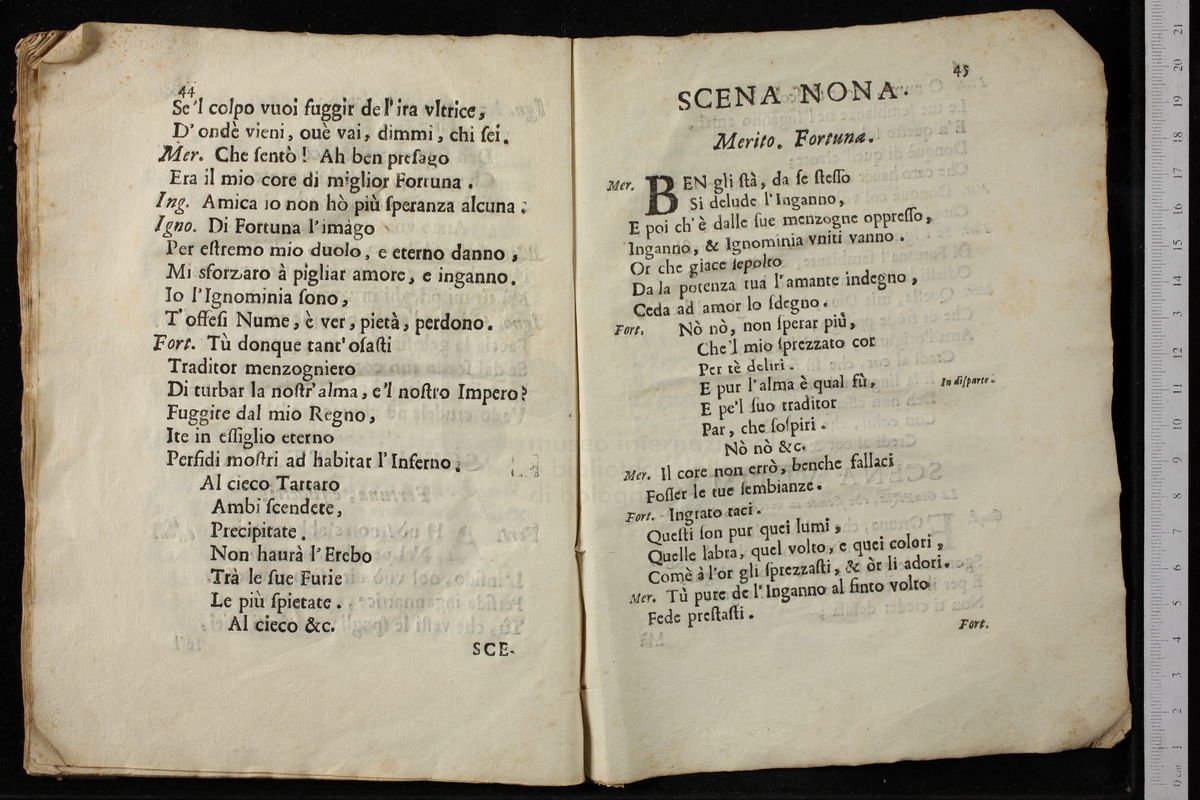 44
Se'l colpo vuoi fuggir de l'ira vltrice,
D'ondè vieni, ouè vai, dimmi, chi sei.
Mer. Che sentò! Ah ben presago
Era il mio core di miglior Fortuna.
Ing. Amica io non hò più speranza alcuna.
Igno. Di Fortuna l'imàgo
Per estremo mio duolo, e eterno danno,
Mi sforzaro à pigliar amore, e inganno.
Io l'Ignominia sono,
T'offesi Nume, è ver, pietà, perdono.
Fort. Tù donque tant'osasti
Traditor menzogniero
Di turbar la nostr'alma, e'l nostro Impero?
Fuggite dal mio Regno,
Ite in essiglio eterno
Perfidi mostri ad habitar l'Inferno.
Al cieco Tartaro
Ambi scendete,
Precipitate.
Non haurà l'Erebo
Trà le sue Furie
Le più spietate.
Al cieco &c.
SCE-
45
SCENA NONA.
Merito. Fortuna.
Mer. BEN gli stà, da se stesso
Si delude l'Inganno,
E poi ch'è dalle sue menzogne oppresso,
Inganno, & Ignominia vniti vanno.
Or che giace sepolto
Da la potenza tua l'amante indegno,
Ceda ad amor lo sdegno.
Fort. Nò nò, non sperar più,
Che'l mio sprezzato cor
Per tè deliri.
E pur l'alma è qual fù, In disparte.
E pe'l suo traditor
Par, che sospiri.
Nò nò &c.
Mer. Il core non errò, benche fallaci
Fosser le tue sembianze.
Fort. Ingrato taci.
Questi son pur quei lumi,
Quelle labra, quel volto, e quei colori,
Comè à l'or gli sprezzasti, & òr li adori.
Mer. Tù pure de l'Inganno al finto volto
Fede prestasti.
Fort.